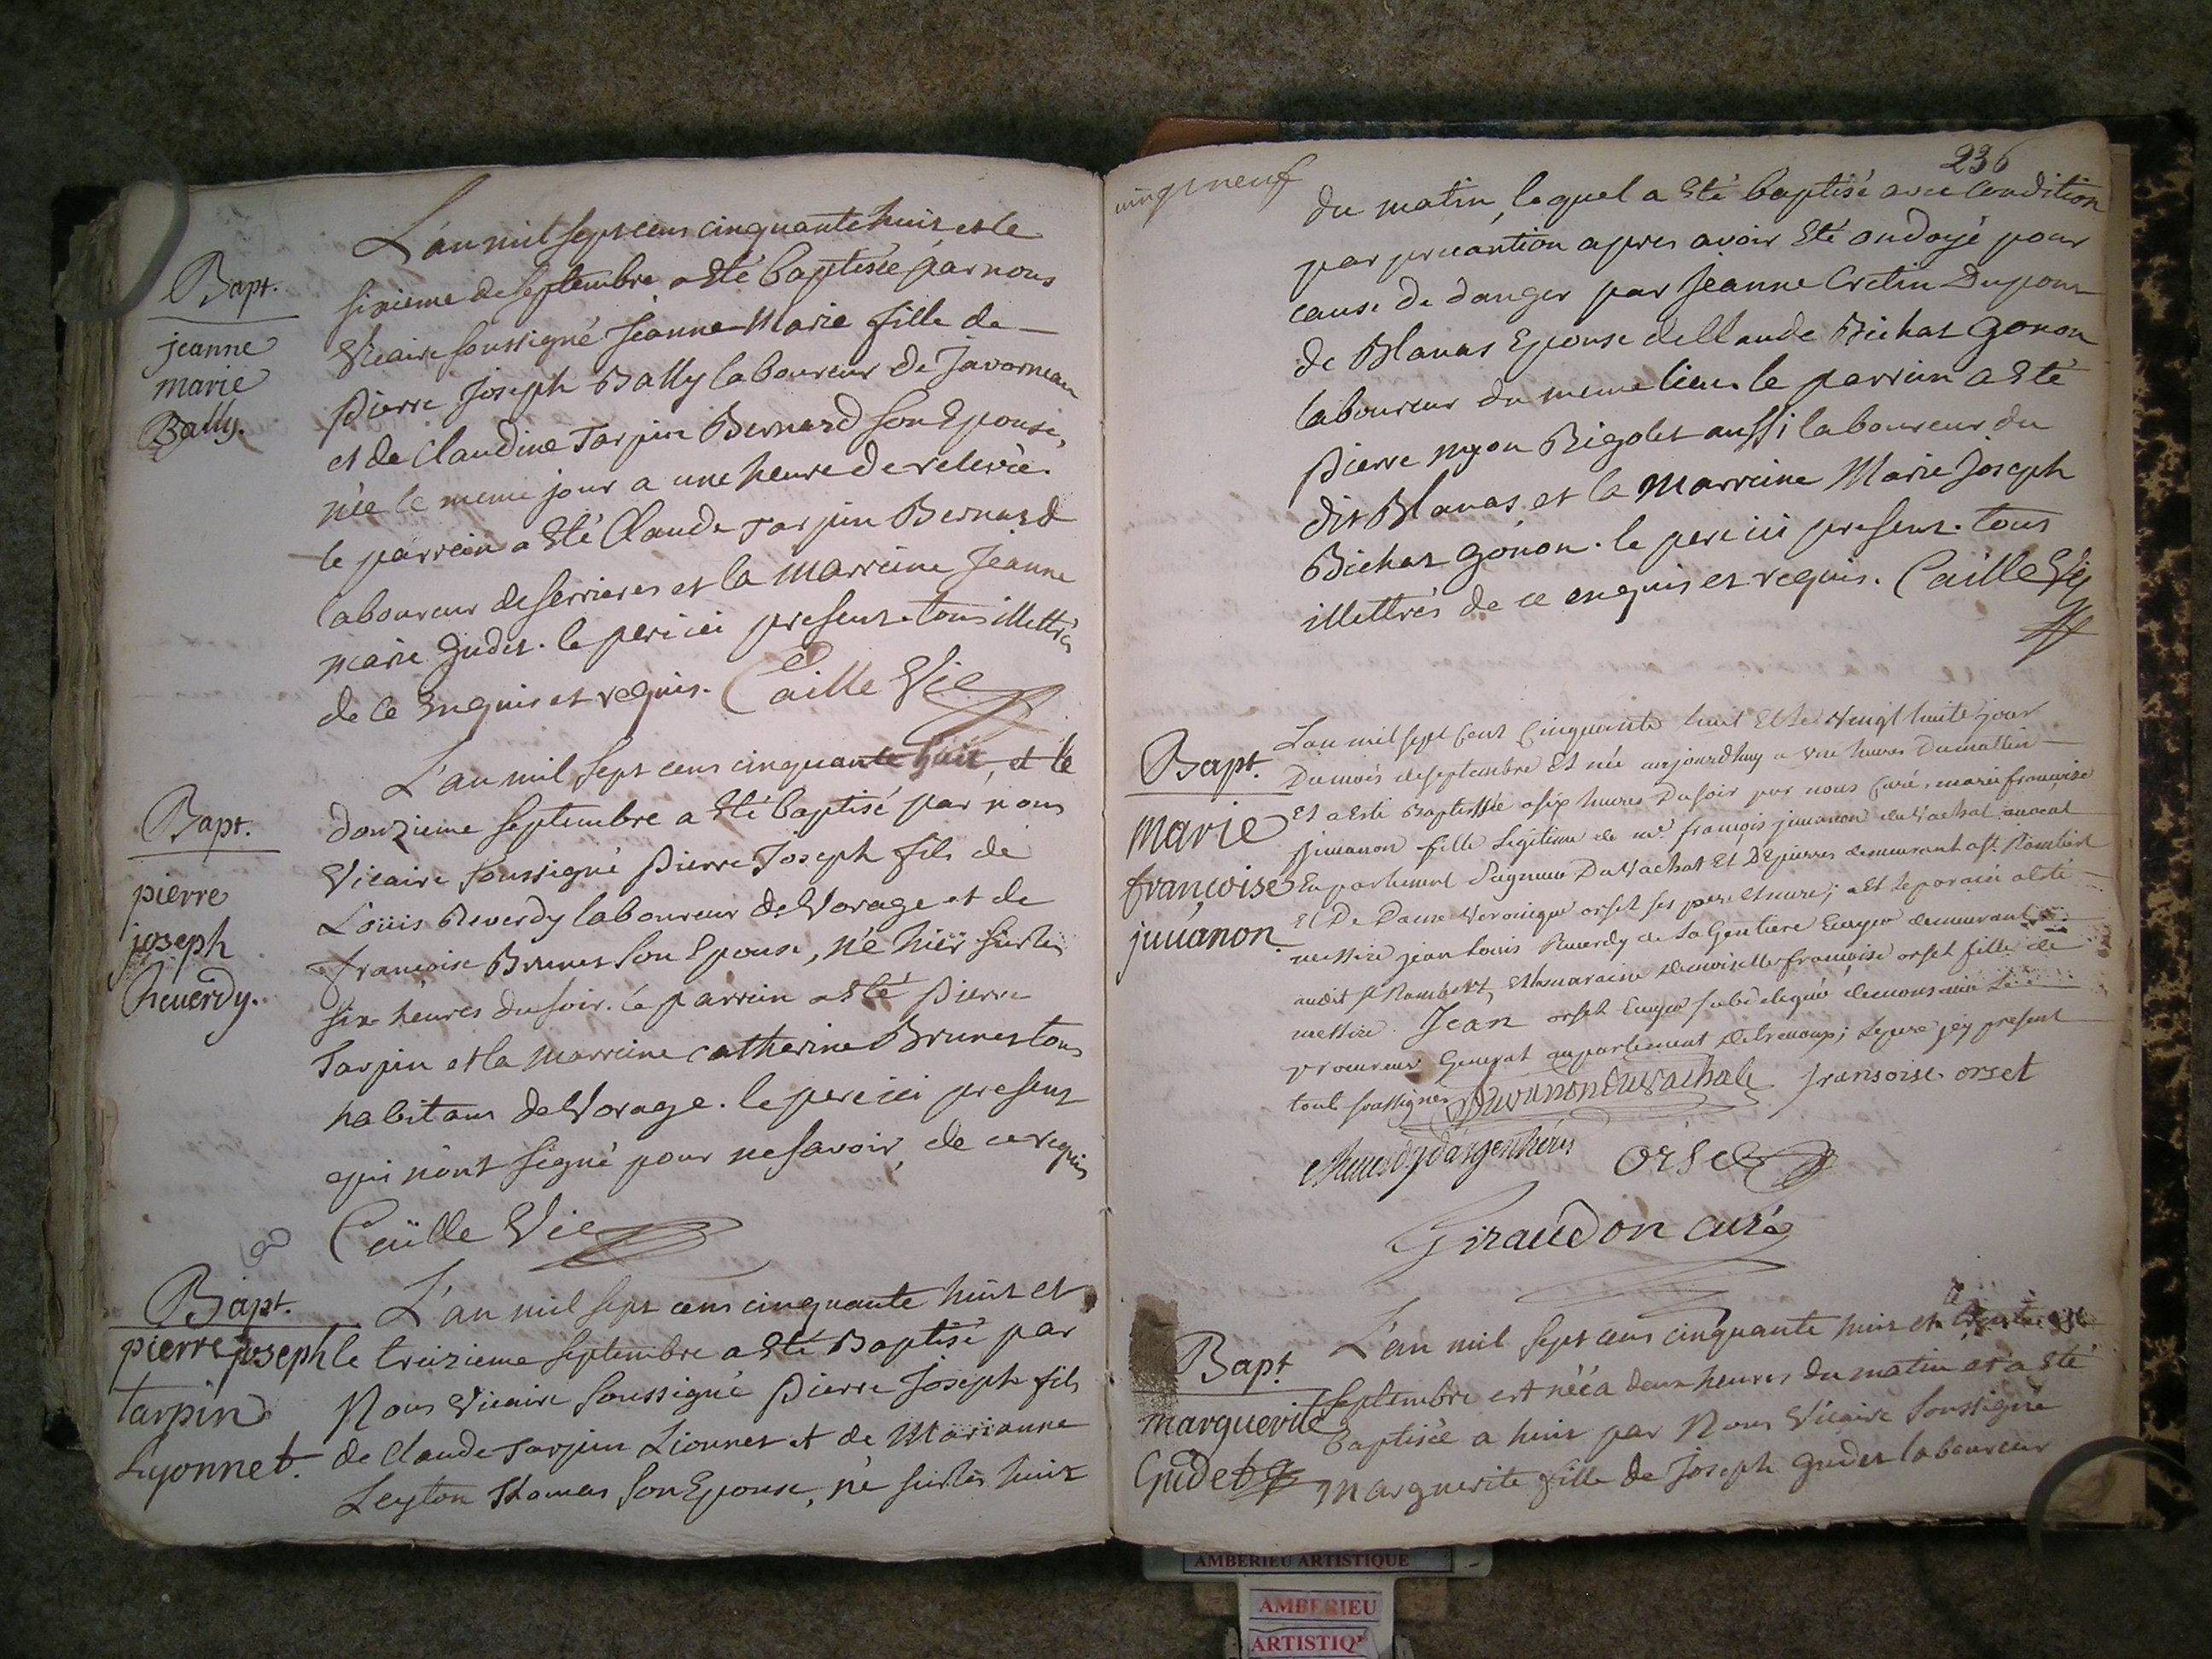 Bapt.
jeanne
marie
Bally.
L'an mil sept cens cinquante huit et le
sixieme de septembre a Eté baptisée par nous
Vicaire soussigné Jeanne Marie fille de
pierre Joseph Bally laboureur de Javorneau
et de Claudine Tarpin Bernard son Epouse,
née le meme jour a une heure de relevée.
le parrein a Eté Claude Tarpin Bernard
laboureur de serrieres et la Marreine Jeanne
marie Gudet. le pere ici present. tous illettrés
de ce Enquis et requis. Caille Vic
Bapt.
pierre
joseph
Reverdy.
L'an mil sept cens cinquante huit, et le
douzieme septembre a Eté baptisé par nous
Vicaire soussigné Pierre Joseph fils de
Loüis Reverdy laboureur de Vorage et de
françoise Brunet son Epouse, né hier sur les
six heures du soir. le parrein a Eté pierre
Tarpin et la Marreine Catherine Brunet tous
habitans de Vorage. le pere ici present
qui n'ont signé pour ne savoir, de ce requis
Caille Vic
Bapt.
pierre joseph
tarpin
Lyonnet.
L'an mil sept cens cinquante huit et
le treizieme septembre a Eté Baptisé par
Nous Vicaire soussigné Pierre Joseph fils
de Claude Tarpin Lionnet et de Marianne
Leyton Thomas son Epouse, né sur les huit
vingt neuf
236
du matin, lequel a Eté baptisé avec condition
par precantion apres avoir Eté ondoyé pour
cause de danger par Jeanne Cretin Dupont
de Blanas Epouse de Claude Bichat Gonon
laboureur du meme lieu. le parrein a Eté
Pierre myon Rigolet aussi laboureur du
dit Blanas et la Marreine Marie Joseph
Bichat Gonon. le pere ici present. tous
illettrés de ce enquis et requis. Caille Vic
Bapt.
Marie
françoise
juuanon
L'an mil sept Cent Cinquante huit Et le Vingt huite jour
Du mois de septembre Et née aujourdhuy a une heures Du mattin
Et a Esté Baptissée a six heures Du soir par nous Curé, marie françoise
juuanon fille Legitime de mr. françois juuanon du Vachat auocat
En parlement Segneur Du Vachat Et D'Epierres demeurant a st Rambert
Et De Dame Veronique orset ses pere Et mere; Et le parain a Esté
messire jean Louis Reuerdy Ecuyer demeurant
audit st Rambert, Et la maraine demoiselle françoise orset fille de
messire Jean orset Ecuyer subdelegué de monsieur Le
procureur General au parlement de; Le pere jcy present
tout soussignes Juvanon du vachat fransoise orset
Reuerdy d'argentieres orset
Giraudon curé
Bapt.
marguerite
Gudet
L'an mil sept cens cinquante huit et le trente
septembre est née a deux heures du matin et a Eté
Baptisée a huit par Nous Vicaire soussigné
Marguerite fille de Joseph Gudet laboureur
AMBERIEU ARTISTIQUE
AMBERIEU
ARTISTIQ